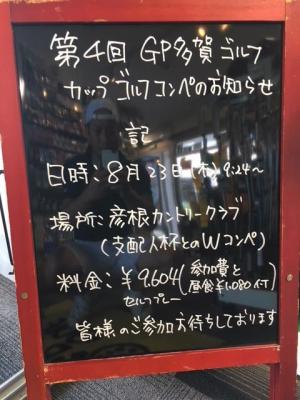 第4回 GP多賀ゴルフ
カップゴルフコンペのお知らせ
記
日時:8月23日(木)9:24~
場所:彦根カントリークラブ
(支配人杯とのWコンペ)
料金:¥9.604(参加費と
昼食¥1,080付)
セルフプレー
皆様のご参加お待ちしております